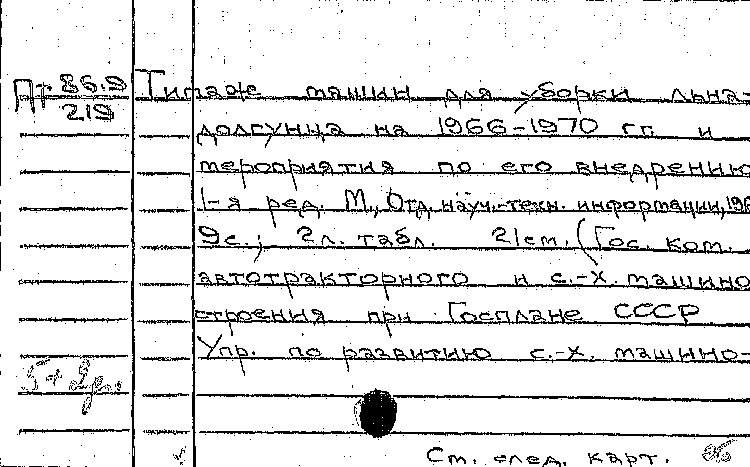 Пт 86.9
219
Типаж машин для уборки льна-
долгунца на 1966-1970 гг. и
мероприятия по его внедрению
1-я ред. М., Отд. науч.-техн. информации, 196
9с.; 2л. табл. 21см. (Гос. ком.
автотракторного и с.-х. машино
строения при Госплане СССР
Упр. по развитию с.-х. машино-
См. след. карт.